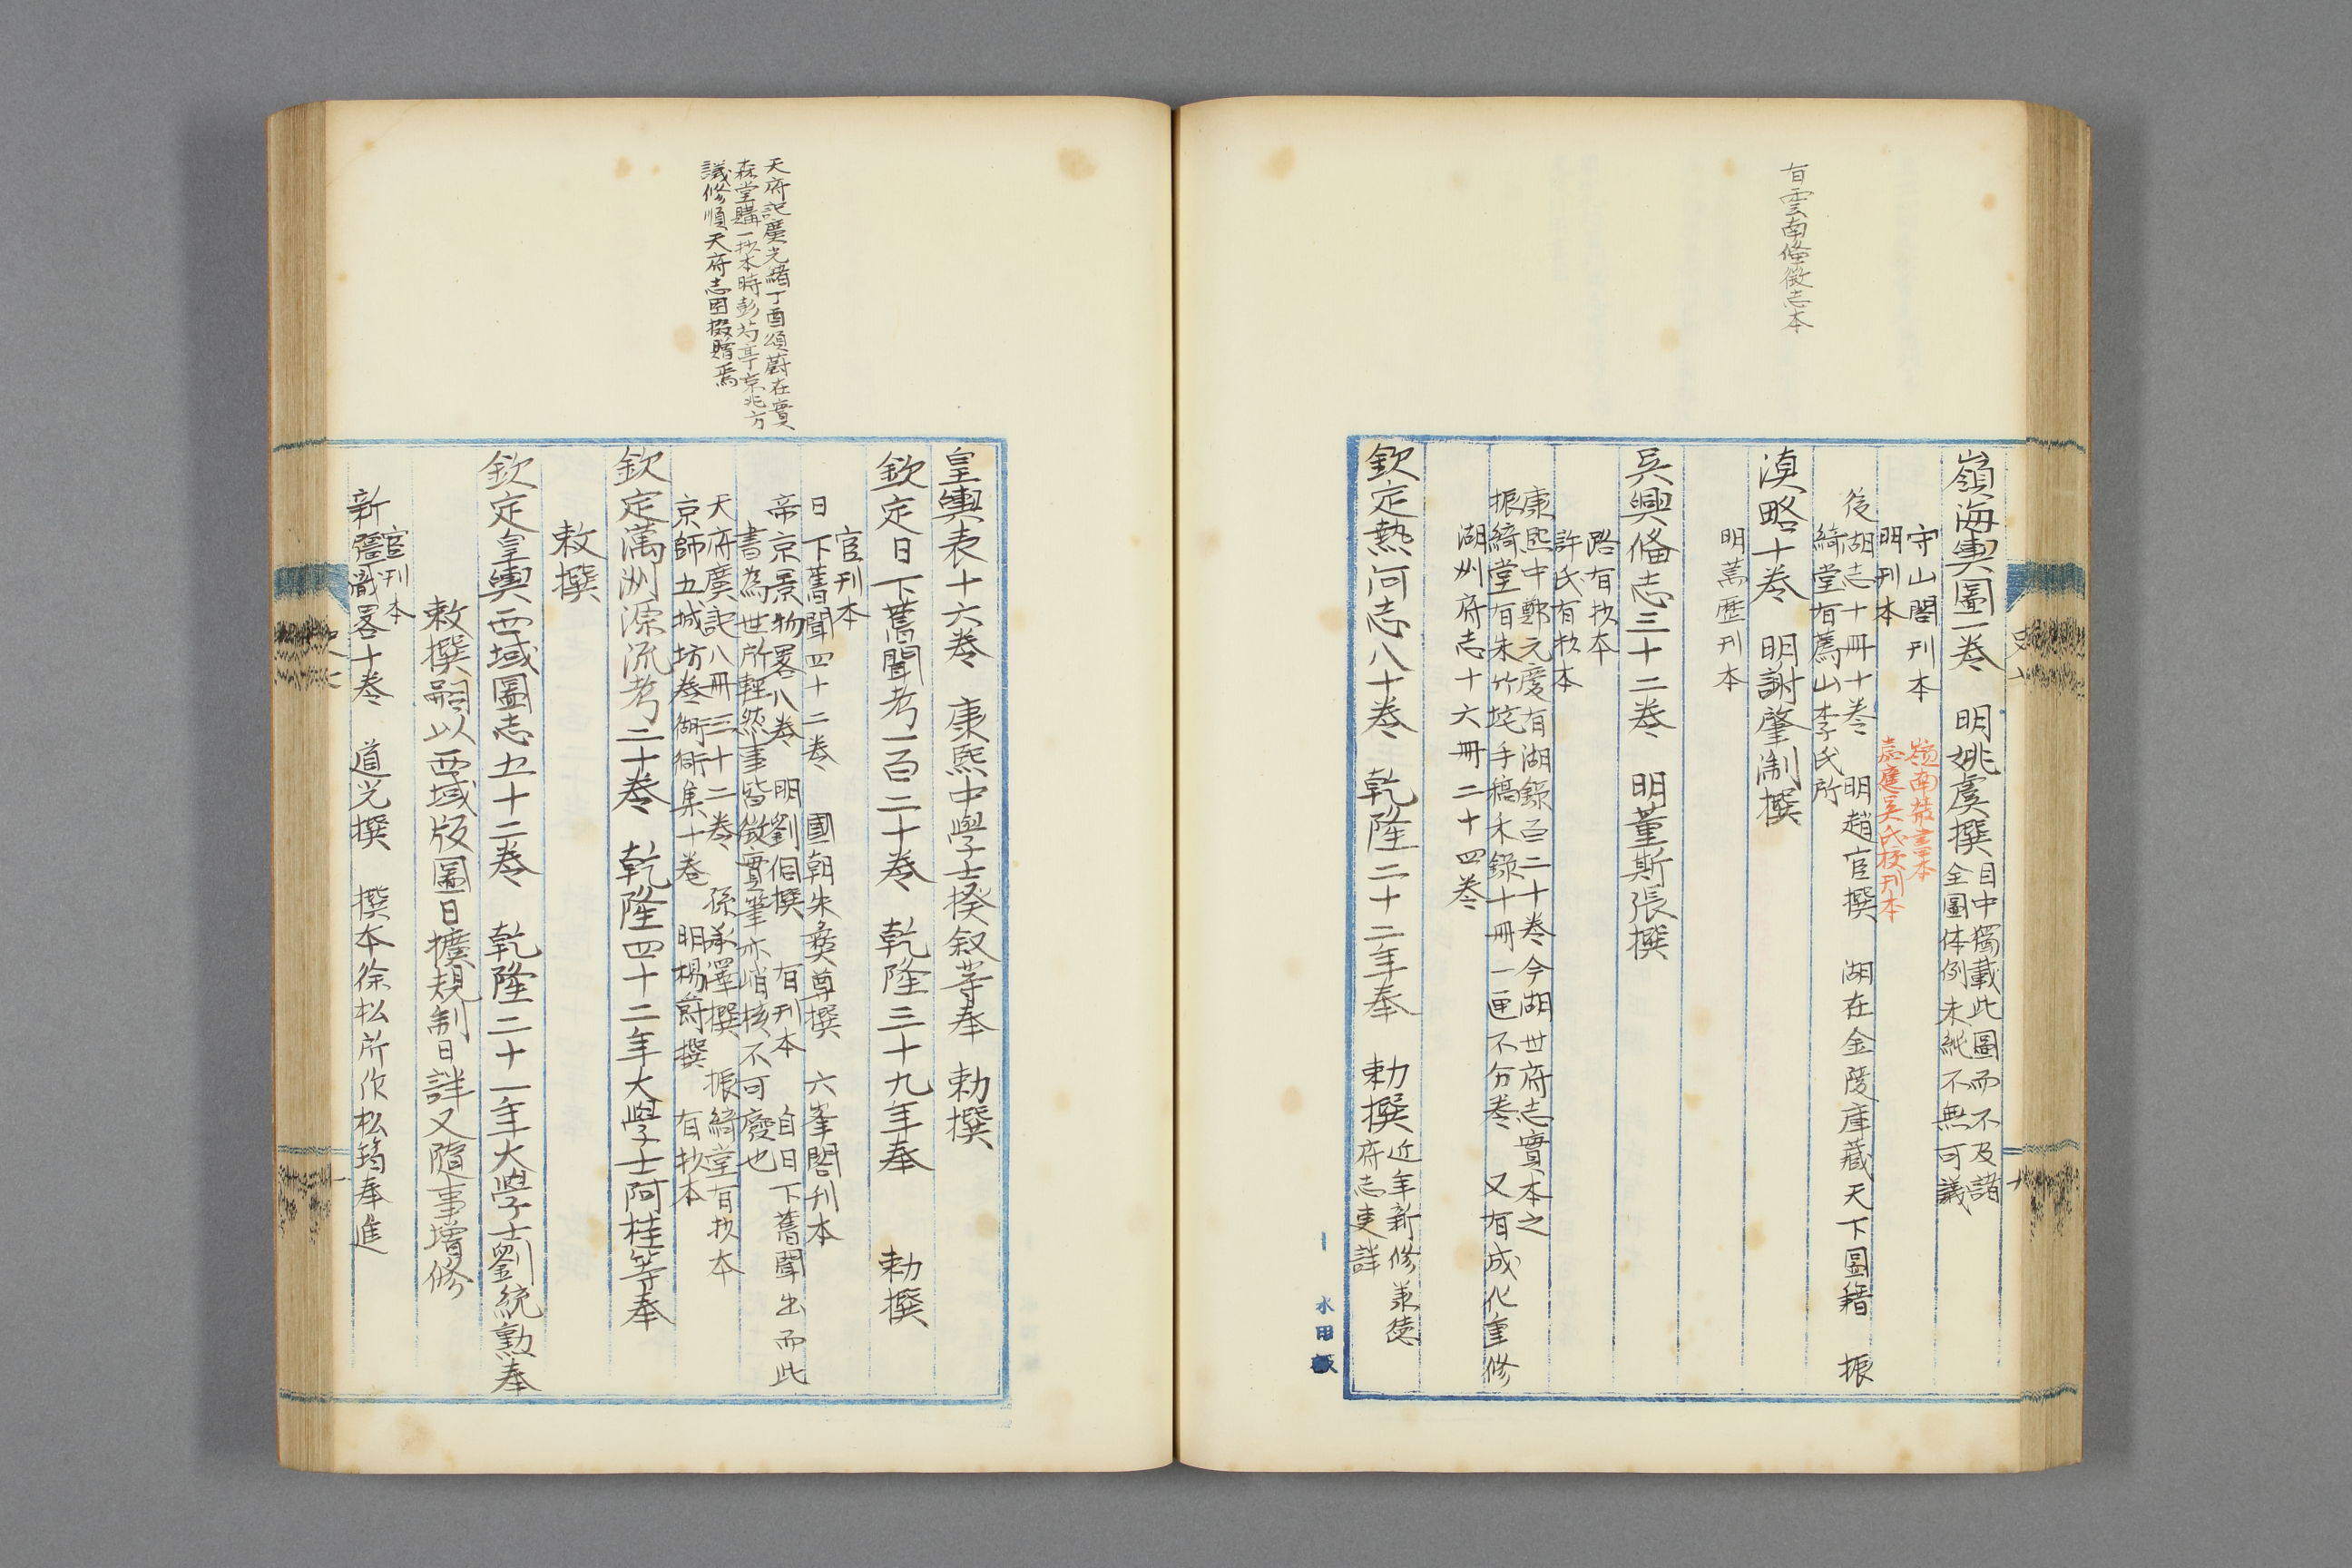 有雲南備徵志本
嶺海輿圖一卷　明姚虞撰
目中獨載此圖而不及諸
全圖体例未純不無可議
守山閣刊本
嶺南叢書本
明刊本
嘉應吳氏校刊本
後湖志十冊十卷　明趙官撰　湖在金陵庫藏天下圖籍　振
綺堂有蔿山李氏所
滇略十卷　明謝肇淛撰
明萬歷刊本
吳興備志三十二卷　明董斯張撰
路有抄本
許氏有抄本
康熙中鄭元慶有湖錄百二十卷今湖世府志實本之
振綺堂有朱竹垞手稿未錄十冊一匣不分卷　又有成化重修
湖州府志十六冊二十四卷
欽定熱河志八十卷　乾隆二十二年奉　勅撰
近年新修承德
府志更詳
水田
天府記廣光緒丁酉頌蔚在寶
森堂購一抄本時彭芍亭京兆方
議修順天府志因掇贈焉
皇輿表十六卷　康熙中學士揆叙等奉　勅撰
欽定日下舊聞考一百二十卷　乾隆三十九年奉　勅撰
官刊本
日下舊聞四十二卷　國朝朱彝尊撰　六峯閣刊本
帝京景物畧八卷　明劉侗撰　有刊本　自日下舊聞出而此
書為世所輕然事皆徵實筆亦峭核不可廢也
天府廣記八冊三十二卷　孫承澤撰　振綺堂有抄本
京師五城坊巷衚衕集十卷　明楊爵撰　有抄本
欽定滿洲源流考二十卷　乾隆四十二年大學士阿桂等奉
敕撰
欽定皇輿西域圖志五十二卷　乾隆二十一年大學士劉統勳奉
敕撰嗣以西域版圖日擴規制日詳又隨事增修
官刊本
新疆識畧十卷　道光撰　撰本徐松所作松筠奉進